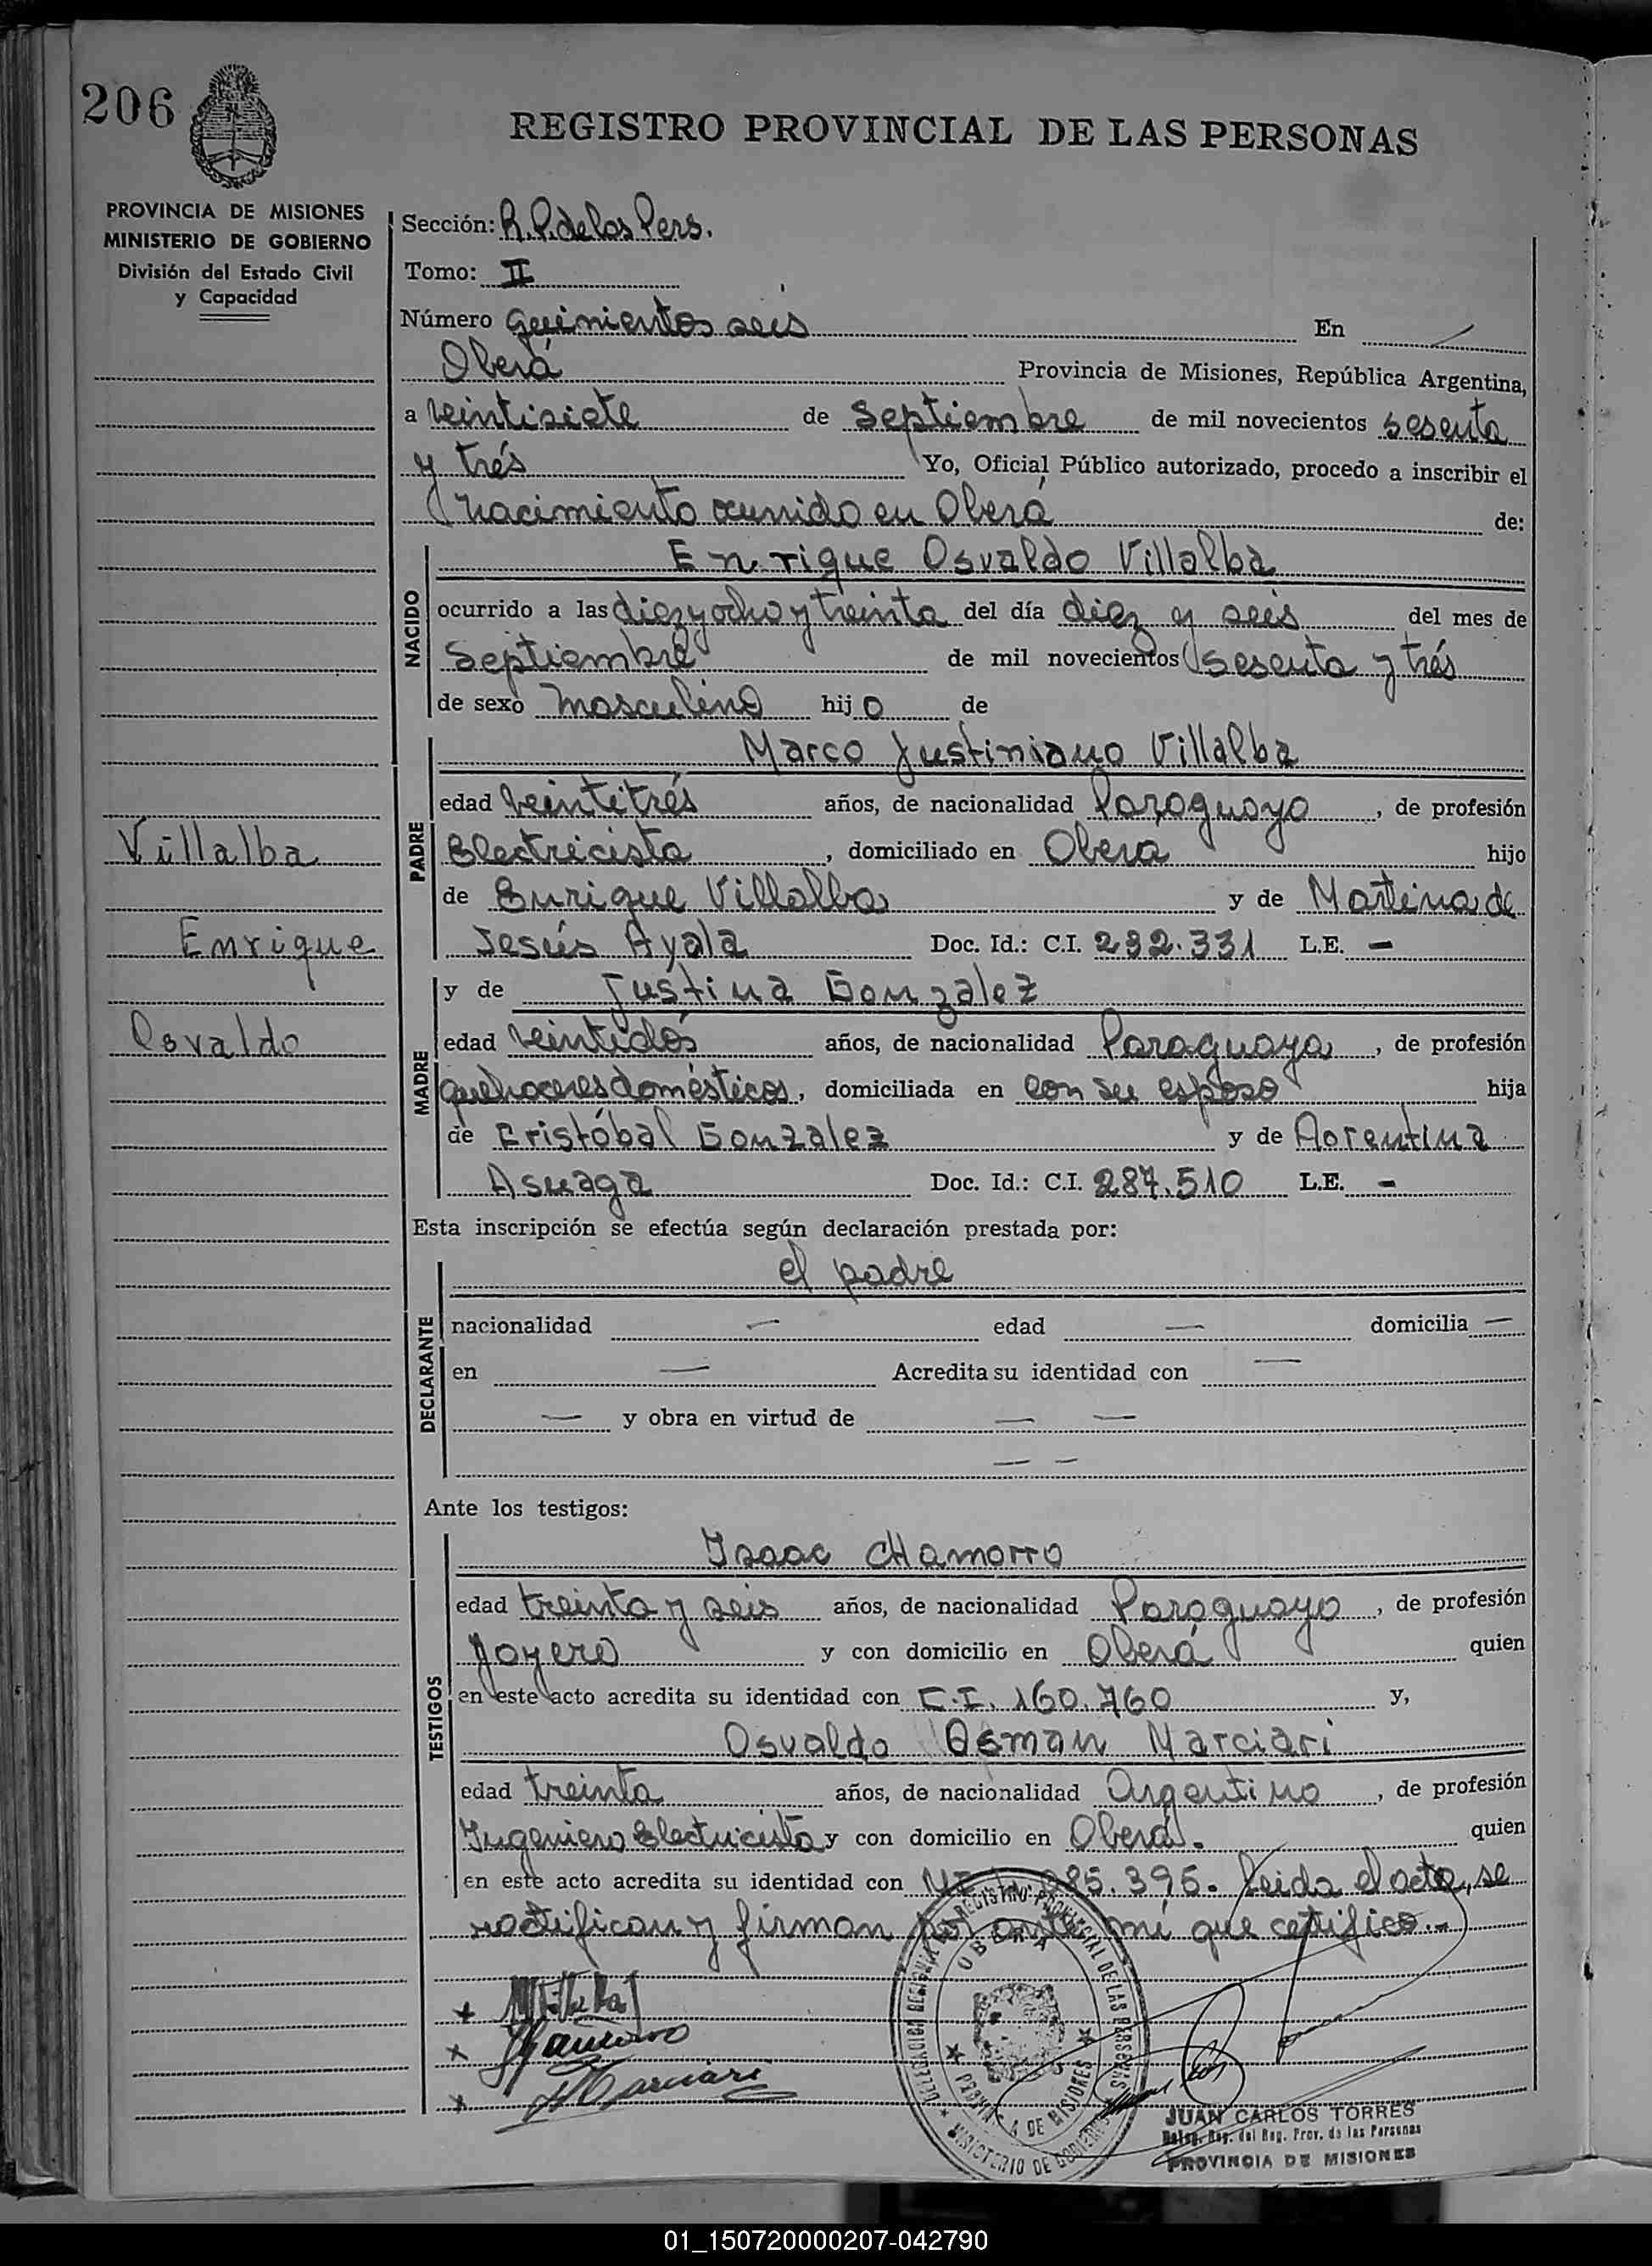 206
REGISTRO PROVINCIAL DE LAS PERSONAS
PROVINCIA DE MISIONES
MINISTERIO DE GOBIERNO
División del Estado Civil
y Capacidad
Sección: R. P. de las Pers.
Tomo: II
Número quinientos seis En
Oberá Provincia de Misiones, República Argentina,
a veintisiete de Septiembre de mil novecientos sesenta
y trés Yo, Oficial Público autorizado, procedo a inscribir el
nacimiento ocurrido en Oberá de:
NACIDO
Enrique Osvaldo Villalba
ocurrido a las diez y ocho y treinta del día diez y seis del mes de
Septiembre de mil novecientos sesenta y trés
de sexo masculino hijo de
PADRE
Marco Justiniano Villalba
edad veintitrés años, de nacionalidad Paraguayo, de profesión
Electricista, domiciliado en Oberá hijo
de Enrique Villalba y de Martina de
Jesús Ayala Doc. Id.: C.I. 292.331 L.E. —
Villalba
Enrique
Osvaldo
MADRE
y de Justina Gonzalez
edad veintidós años, de nacionalidad Paraguaya, de profesión
quehaceres domésticos, domiciliada en con su esposo hija
de Cristóbal Gonzalez y de Florentina
Asuaga Doc. Id.: C.I. 287.510 L.E. -
Esta inscripción se efectúa según declaración prestada por:
DECLARANTE
el padre
nacionalidad — edad — domicilia —
en — Acredita su identidad con —
— y obra en virtud de — —
— —
Ante los testigos:
TESTIGOS
Isaac CHamorro
edad treinta y seis años, de nacionalidad Paraguayo, de profesión
Joyero y con domicilio en Oberá quien
en este acto acredita su identidad con C.I. 160.760 y,
Osvaldo Osman Marciari
edad treinta años, de nacionalidad Argentino, de profesión
Ingeniero Electricista y con domicilio en Oberá. quien
en este acto acredita su identidad con 395. Leida el acta, se
ratifican y firman por ante mí que certifico.-
DELEGACION REGIONAL DEL REGISTRO PROVINCIAL DE LAS PERSONAS
OBERA
PROVINCIA DE MISIONES
MINISTERIO DE GOBIERNO
JUAN CARLOS TORRES
Deleg. Reg. del Reg. Prov. de las Personas
PROVINCIA DE MISIONES
01_150720000207-042790